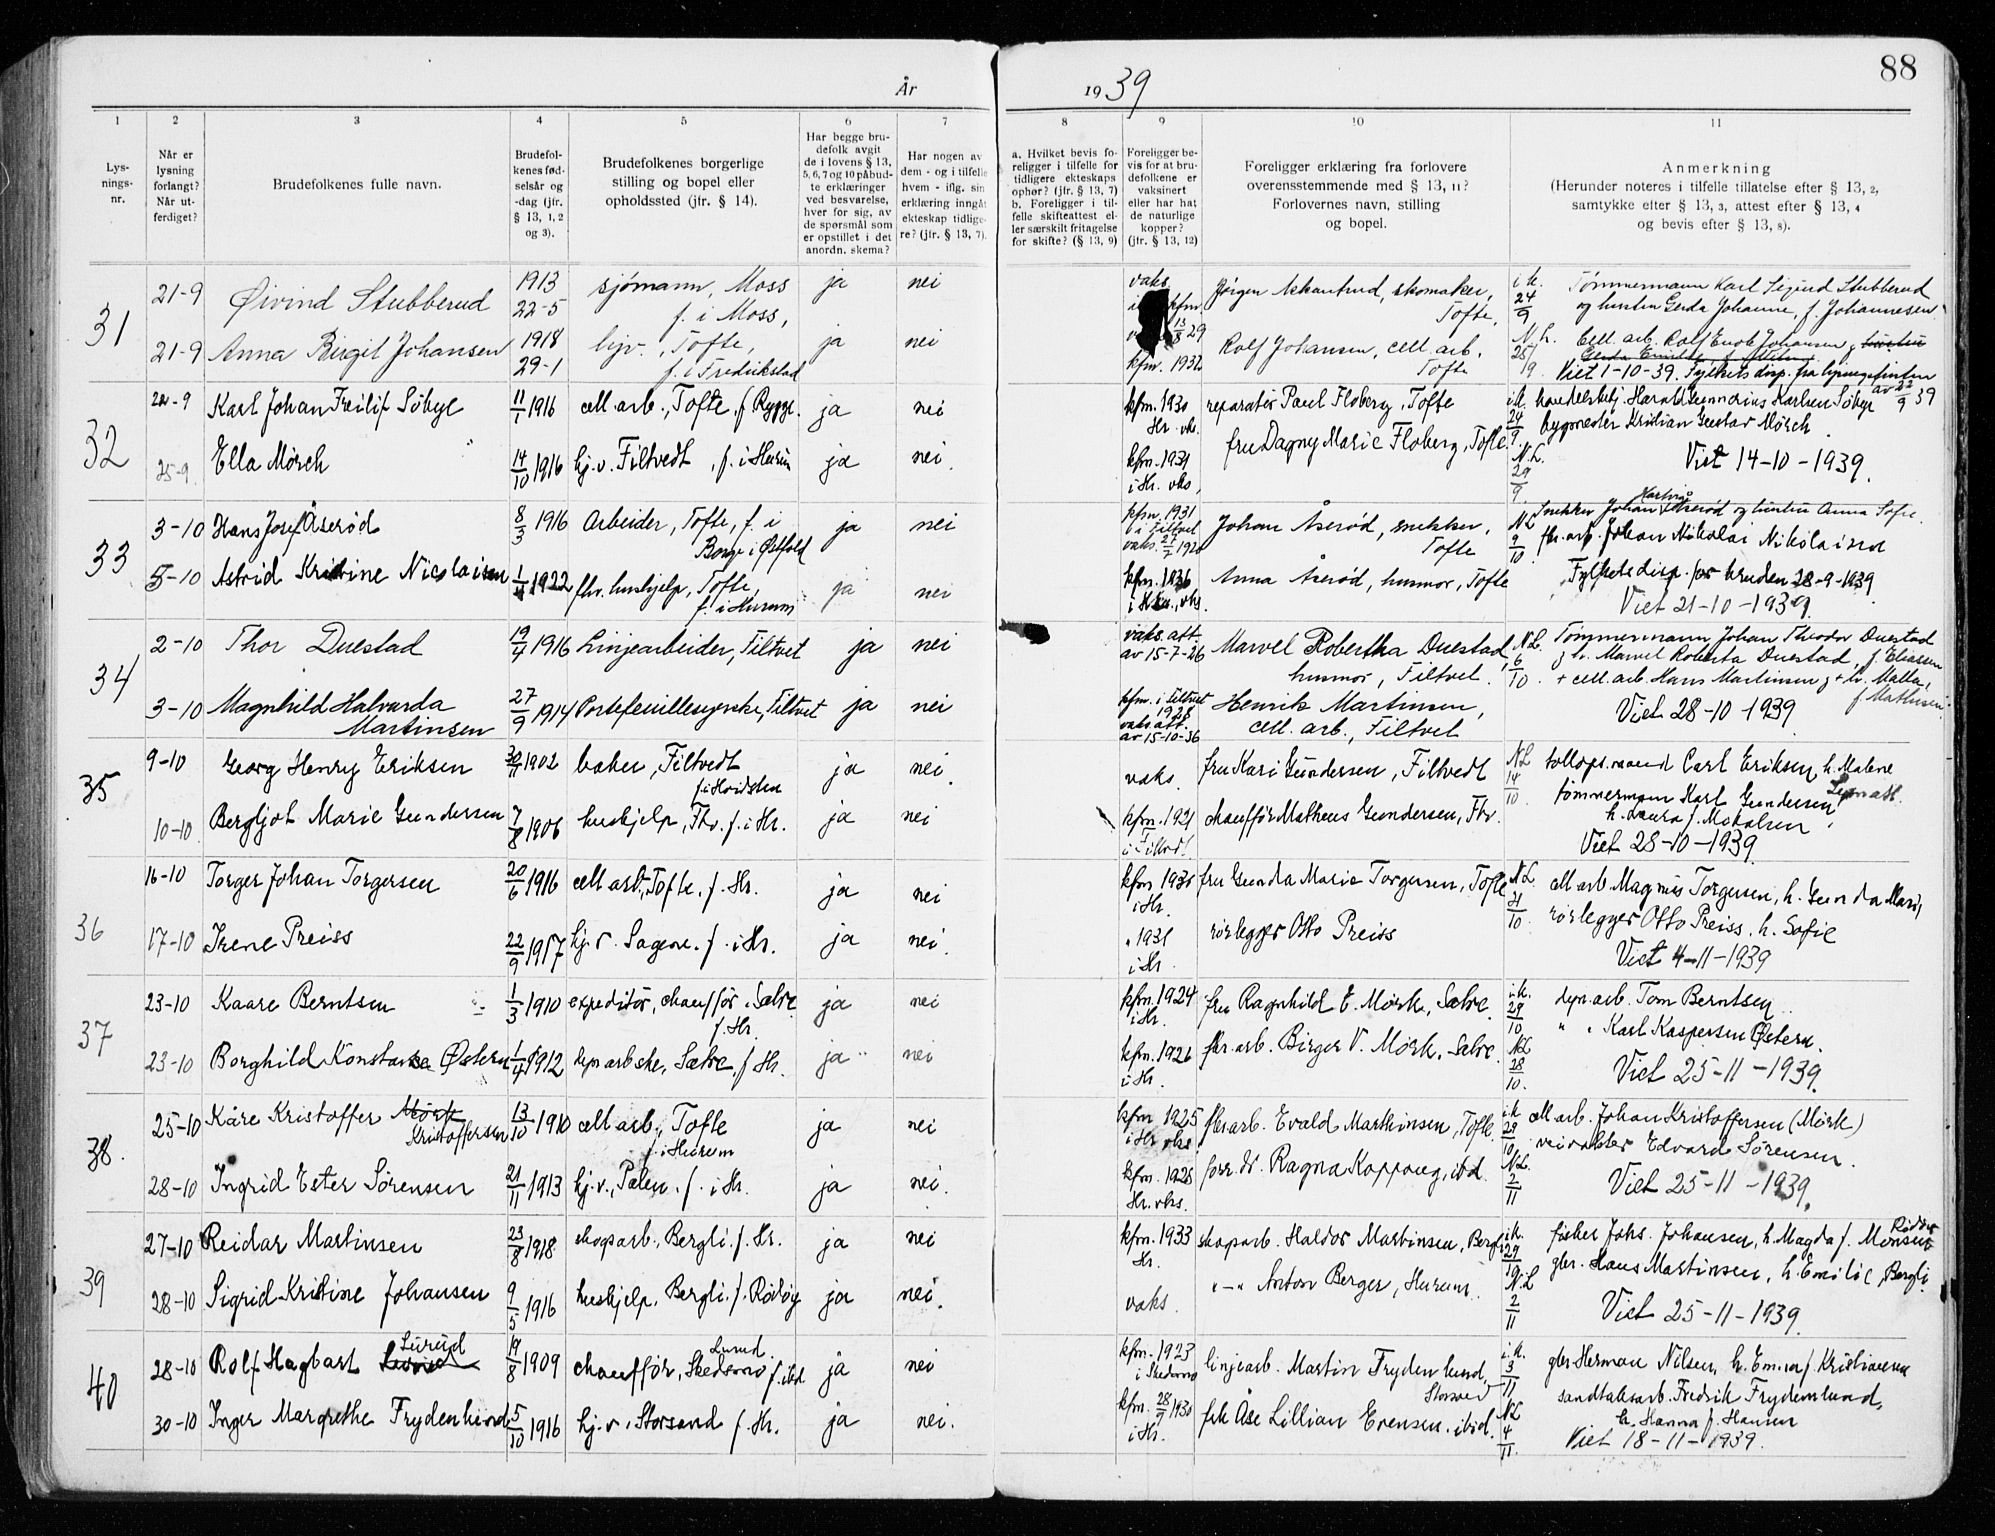 88
År 1939
1 2 3 4 5 6 7 8 9 10 11
Lys-
nings-
nr.
Når er
lysning
forlangt?
Når ut-
ferdiget?
Brudefolkenes fulle navn.
Brudefol-
kenes fød-
selsår og
-dag (jfr.
§ 13, 1, 2
og 3).
Brudefolkenes borgerlige
stilling og bopel eller
opholdssted (jfr. § 14).
Har begge bru-
defolk avgit
de i lovens § 13,
5, 6, 7 og 10 påbud-
te erklæringer
ved besvarelse,
hver for sig, av
de spørsmål som
er opstillet i det
anordn. skema?
Har nogen av
dem - og i tilfelle
hvem - iflg. sin
erklæring inngåt
ekteskap tidlige-
re? (jfr. § 13, 7).
a. Hvilket bevis fo-
religger i tilfelle for
tidligere ekteskaps
ophør? (jfr. § 13, 7)
b. Foreligger i til-
felle skifteattest el-
ler særskilt fritagelse
for skifte? (§ 13, 9)
Foreligger be-
vis for at bru-
defolkene er
vaksinert
eller har hat
de naturlige
kopper?
(jfr. § 13, 12)
Foreligger erklæring fra forlovere
overensstemmende med § 13, 11?
Forlovernes navn, stilling
og bopel.
Anmerkning
(Herunder noteres i tilfelle tillatelse efter § 13, 2,
samtykke efter § 13, 3, attest efter § 13, 4
og bevis efter § 13, 8).
31
21-9 Øivind Stubberud 1913 22-5 sjømann, Moss f. i Moss, ja nei
vaks. kfm. 13/8 29 Jørgen skomaker, Tofte, i k. 24/9 Tømmermann Karl Sigurd Stubberud
og hustru Gerda Johanne, f. Johannesen
21-9 Anna Birgit Johansen 1918 29-1 hjv., Tofte, f. i Fredrikstad ja nei
kfm. 1932 Rolf Johansen, cell. arb. Tofte N. L. 25/9 Cell. arb. Rolf Johansen
Viet 1-10-39. Fylkets disp. fra lysningsfristen av 22/9 39
32
22-9 Karl Johan Freilif Søbye 11/1 1916 cell. arb., Tofte, f. Rygge. ja nei
kfm. 1930 Hr. vks. reparatør Paul Floberg, Tofte i k. 24/9. Harald Gunnerius Karlsen Søbye
25-9. Ella Mörch 14/10 1916 hj. v. Filtvedt, f. i Hurum ja nei.
kfm. 1931 i Hr. vks, fru Dagny Marie Floberg, Tofte. N. L. 29/9. bygmester Kristian Gustav Mörch
Viet 14-10-1939.
33
3-10 Hans Josef Åserød 8/3 1916 Arbeider, Tofte, f. i Borge i Østfold ja nei
kfm. 1931 i Filtvet vaks. Johan Åserød, snekker, Tofte N L 9/10. Snekker Johan Hartvig Åserød og hustru Anna Sofie.
3-10 Astrid Kristine Nicolaisen 1/4 1922 fhv. hushjelp, Tofte, f. i Hurum ja nei
kfm. 1936 Anna Åserød, husmor, Tofte fbr. arb. Johan Nikolai Nikolaisen
Fylkets disp. for bruden 28-9-1939
Viet 21-10-1939.
34
2-10 Thor Duestad 19/4 1916 Linjearbeider, Filtvet ja nei
vaks. att. av 15-7-26 Marvel Robertha Duestad, husmor, Filtvet. N. L. 6/10. Tømmermann Johan Theodor Duestad
Marvel Roberta Duestad, f. Eliassen
3-10 Magnhild Halvarda Martinsen 27/9 1914 Portefeuillesyerske, Filtvet ja nei
kfm. i Filtvet 1928 vaks. att. av 15-10-36 Henrik Martinsen, cell. arb., Filtvet + cell. arb. Hans Martinsen
f. Mathisen
Viet 28-10 1939
35
9-10 Georg Henry Eriksen 1902 baker, Filtvedt ja nei.
vaks. fru Kari Gundersen, Filtvedt N L 14/10. tollops.mand Carl Eriksen, h. Malene
10-10 Bergljot Marie Gundersen 7/8 1906 hushjelp, Fhv. f. i Hr. ja nei
kfm. 1921 i Filtvdt. chaufför Matheus Gundersen, Fhv. tømmermann Karl Gundersen
h. Laura f.
Viet 28-10-1939.
36
16-10 Torger Johan Torgersen 20/6 1916 cell arb, Tofte. f. Hr. ja nei
kfm 1931 i Hr. fru Gunda Marie Torgersen, Tofte N L 31/10. cell arb. Magnus Torgersen, h. Gunda Marie,
17-10 Irene Preiss 22/9 1917 hj. v. Sagene. f. i Hr. ja nei.
" 1931 i Hr. rørlegger Otto Preiss rørlegger Otto Preiss, h. Sofie
Viet 4-11-1939
37
23-10 Kaare Berntsen 1/3 1910 expeditör, chaufför, Sætre f. Hr. ja nei
kfm. 1924 i Hr. fru Ragnhild E. Mörk, Sætre. i. k. 29/10 dyn. arb. Tom Berntsen
23-10 Borghild Konstanse Østern 1/4 1912 dyn arb ske, Sætre, f. Hr. ja nei
kfm. 1926 i Hr. fbr. arb. Birger V. Mörk, Sætre. N L 28/10. " " Karl Kaspersen Østern.
Viet 25-11-1939.
38.
25-10 Kåre Kristoffer Mörk Kristoffersen 13/10 1910 cell arb., Tofte f. i Hurum ja nei
kfm 1925 i Hr vks. fbr arb. Evald Marthinsen, Tofte. i k 29/10 cell arb. Johan Kristoffersen (Mörk)
28-10 Ingrid Ester Sörensen 21/11 1913 hj. v., f. i Hr. ja nei.
kfm. 1928 Hr. vks. Ragna Koppang, ibd. N. L. 2/11 Edvard Sörensen.
Viet 25-11-1939.
39
27-10 Reidar Martinsen 23/8 1918 skogsarb., Bergli. f. Hr. ja nei
kfm. 1933 Hr. skogsarb. Haldor Martinsen, Bergli i k. 29/10 fisker Johs. Johansen, h. Magda f. Monsen Rødøy
28-10 Sigrid Kristine Johansen 9/5 1916 hushjelp, Bergli. f. Rödöy ja nei.
vaks. " - " Anton Berger, Hurum. N. L 2/11 gbr. Hans Martinsen, h. Emilie, Bergli.
Viet 25-11-1939.
40
28-10 Rolf Hagbart Livrud 19/8 1909 chaufför, Skedsmo f. ibd ja nei
kfm. 1923 i Skedsmo linjearb. Martin Frydenlund, Storsand i. k. 3/11 gbr Herman Nilsen, h. Emma f. Kristiansen
30-10 Inger Margrethe Frydenlund 5/10 1916 hj. v. Storsand f. Hr. ja nei.
kfm. 28/9 1930 i Hr. frk Åse Lillian Evensen. ibid. N L 4/11. sandtaksarb. Fredrik Frydenlund,
h. Hanna f. Hansen
Viet 18-11-1939.